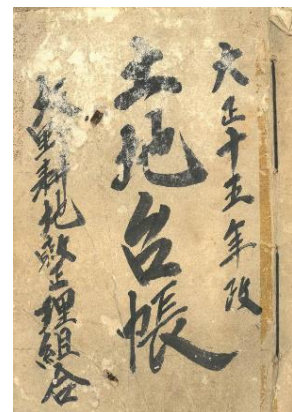 大正十五年改
土地台帳
大里耕地整理組合